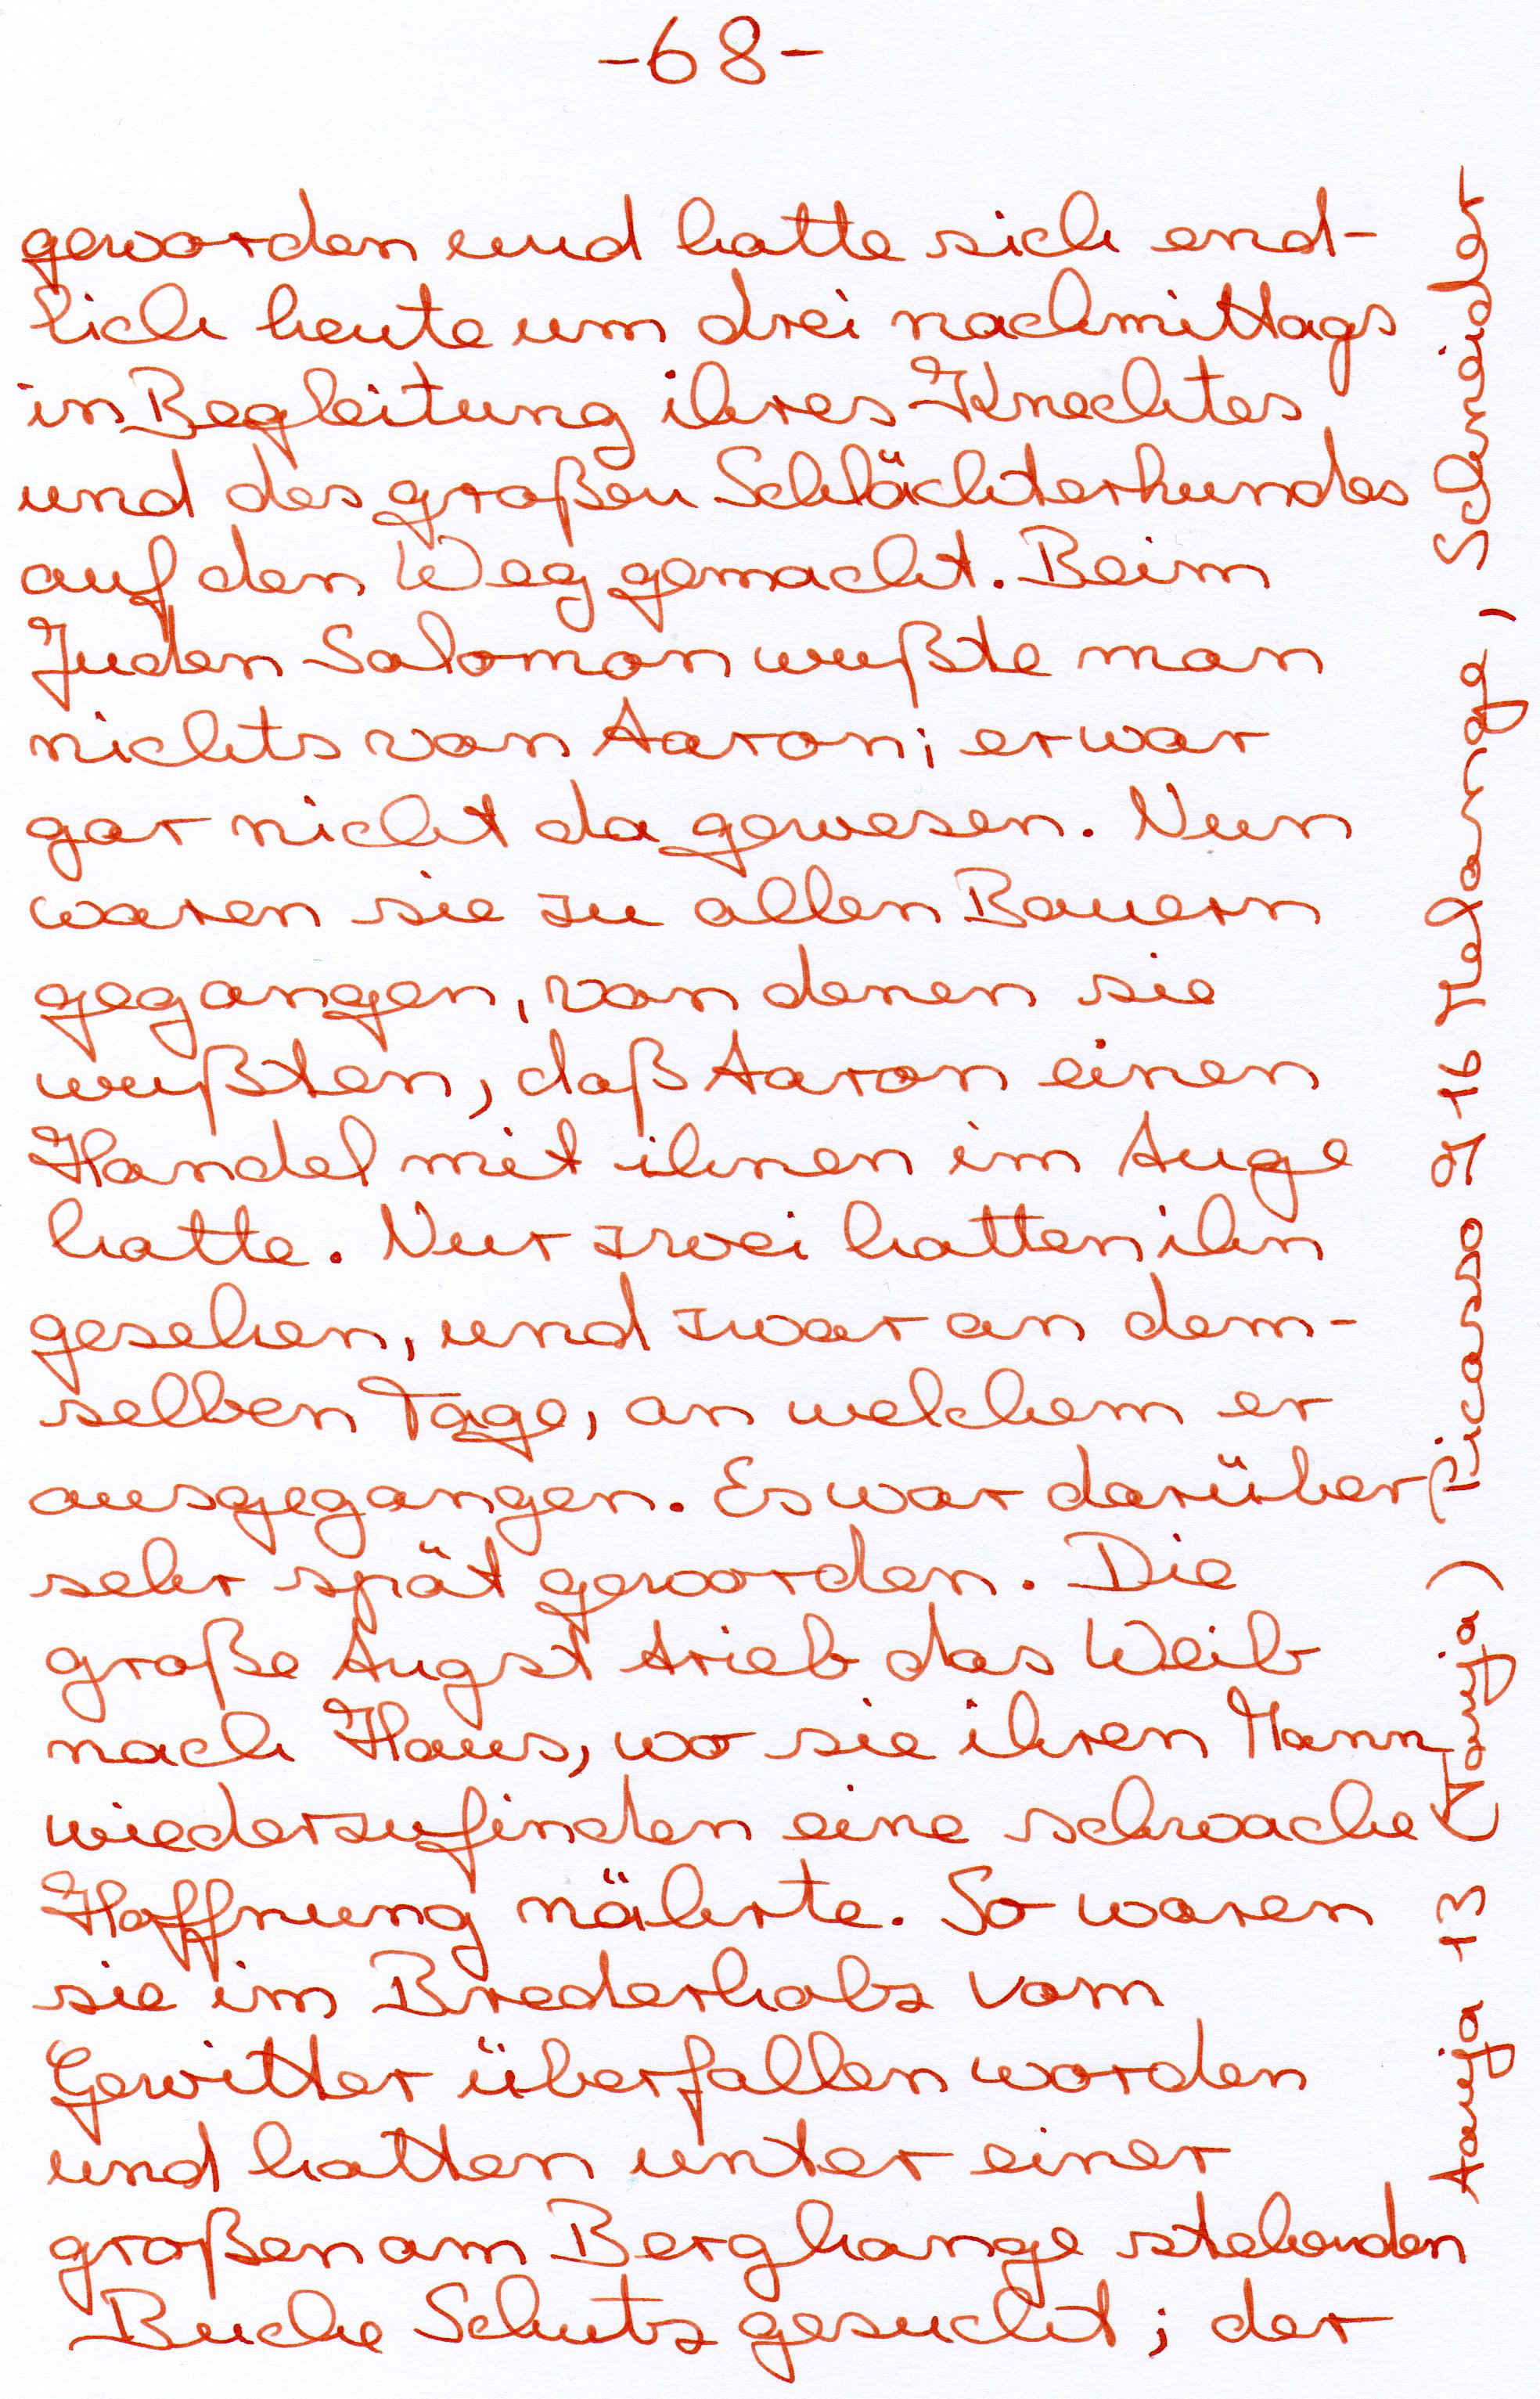 -68-
geworden und hatte sich end-
lich heute um drei nachmittags
in Begleitung ihres Knechtes
und des großen Schlächterhundes
auf den Weg gemacht. Beim
Juden Salomon wußte man
nichts von Aaron; er war
gar nicht da gewesen. Nun
waren sie zu allen Bauern
gegangen, von denen sie
wußten, daß Aaron einen
Handel mit ihnen im Auge
hatte. Nur zwei hatten ihn
gesehen, und zwar an dem-
selben Tage, an welchem er
ausgegangen. Es war darüber
sehr spät geworden. Die
große Angst trieb das Weib
nach Haus, wo sie ihren Mann
wiederzufinden eine schwache
Hoffnung nährte. So waren
sie im Brederholz vom
Gewitter überfallen worden
und hatten unter einer
großen am Berghange stehenden
Buche Schutz gesucht; der
13 Picasso 16